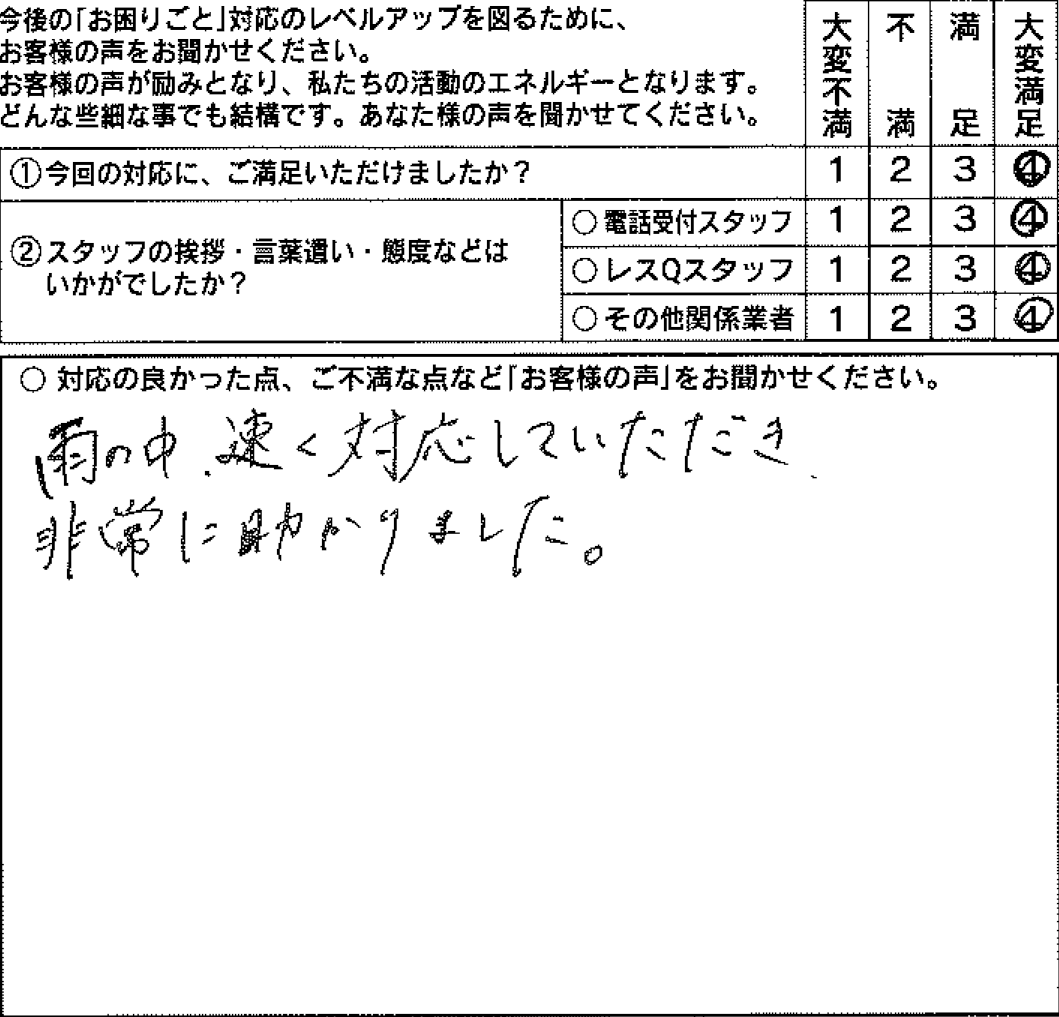 今後の｢お困りごと｣対応のレベルアップを図るために、
お客様の声をお聞かせください。
お客様の声が励みとなり、私たちの活動のエネルギーとなります。
どんな些細な事でも結構です。あなた様の声を聞かせてください。
大変不満 不満 満足 大変満足
①今回の対応に、ご満足いただけましたか？ 1 2 3 4
②スタッフの挨拶・言葉遣い・態度などは
いかがでしたか？
○電話受付スタッフ 1 2 3 4
○レスQスタッフ 1 2 3 4
○その他関係業者 1 2 3 4
○ 対応の良かった点、ご不満な点など｢お客様の声｣をお聞かせください。
雨の中、速く対応していただき、
非常に助かりました。